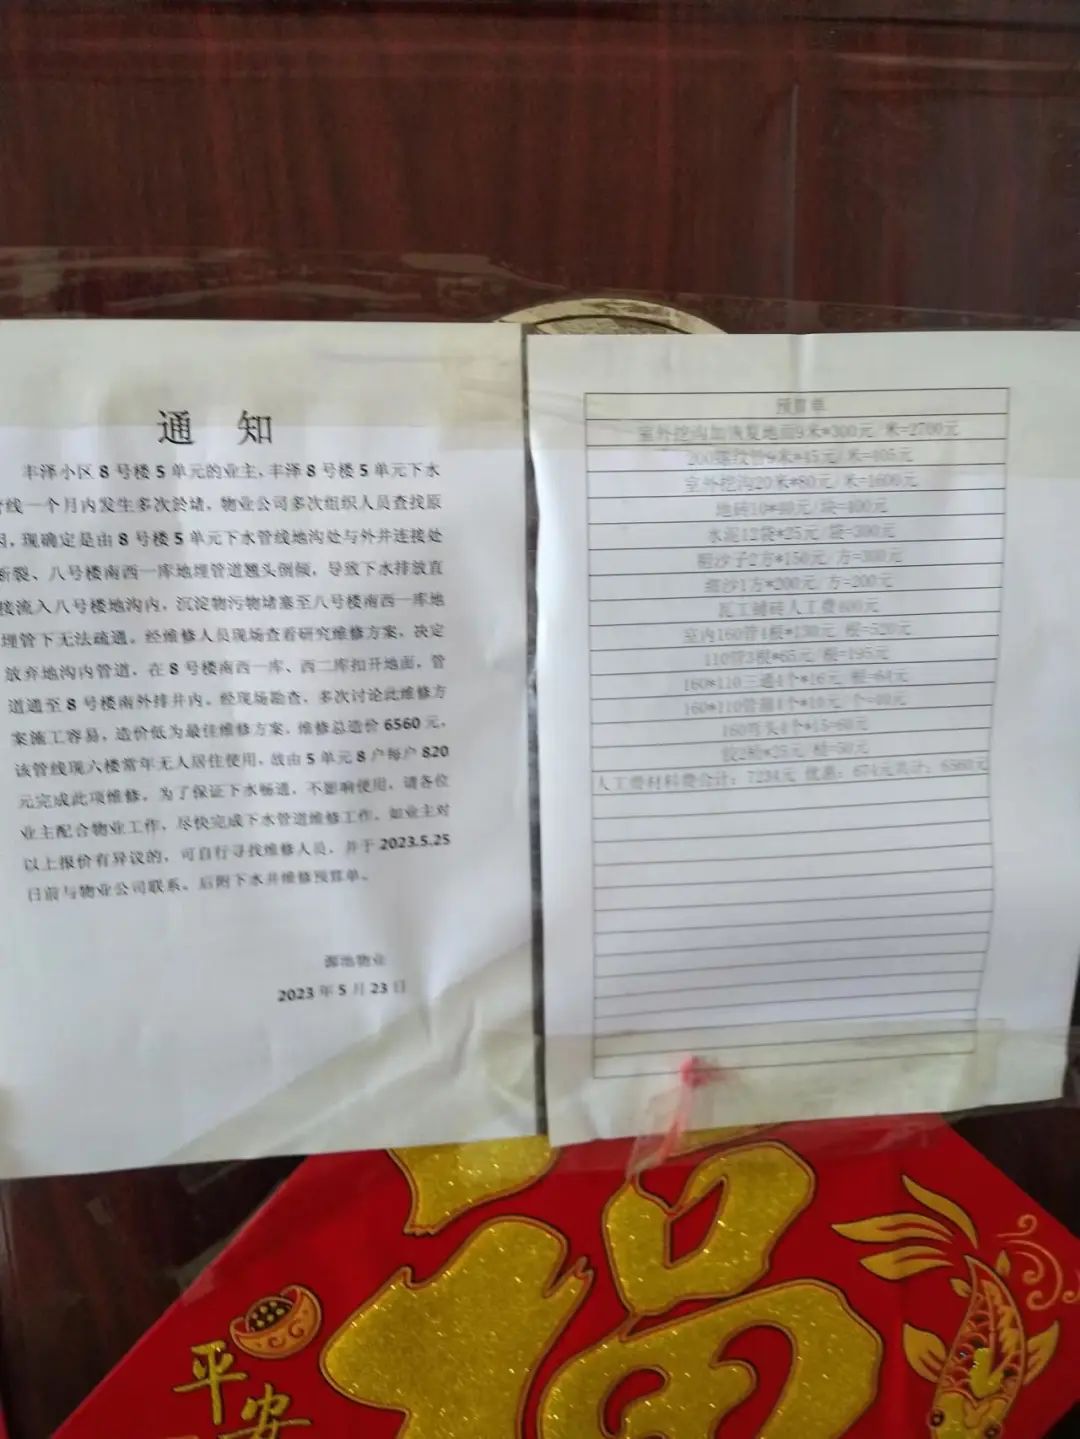 通 知
丰泽小区 8 号楼 5 单元的业主,丰泽 8 号楼 5 单元下水
管线一个月内发生多次於堵,物业公司多次组织人员查找原
因,现确定是由 8 号楼 5 单元下水管线地沟处与外井连接处
断裂、八号楼南西一库地埋管道翘头倒倾,导致下水排放直
接流入八号楼地沟内,沉淀物污物堵塞至八号楼南西一库地
埋管下无法疏通。经维修人员现场查看研究维修方案,决定
放弃地沟内管道,在 8 号楼南西一库、西二库扣开地面,管
道通至 8 号楼南外排井内。经现场勘查,多次讨论此维修方
案施工容易,造价低为最佳维修方案,维修总造价 6560 元,
该管线现六楼常年无人居住使用,故由 5 单元 8 户每户 820
元完成此项维修,为了保证下水畅通,不影响使用,请各位
业主配合物业工作,尽快完成下水管道维修工作,如业主对
以上报价有异议的,可自行寻找维修人员,并于 2023.5.25
日前与物业公司联系。后附下水井维修预算单。
源池物业
2023 年 5 月 23 日
预算单
室外挖沟加恢复地面9米*300元/米=2700元
200螺纹管9米*45元/米=405元
室外挖沟20米*80元/米=1600元
地砖10*40元/块=400元
水泥12袋*25元/袋=300元
粗沙子2方*150元/方=300元
细沙1方*200元/方=200元
瓦工铺砖人工费400元
室内160管4根*130元/根=520元
110管3根*65元/根=195元
160*110三通4个*16元/根=64元
160*110管箍4个*10元/个=40元
160弯头4个*15=60元
胶2桶*25元/桶=50元
人工费材料费合计:7234元 优惠:674元共计:6560元
福
平安